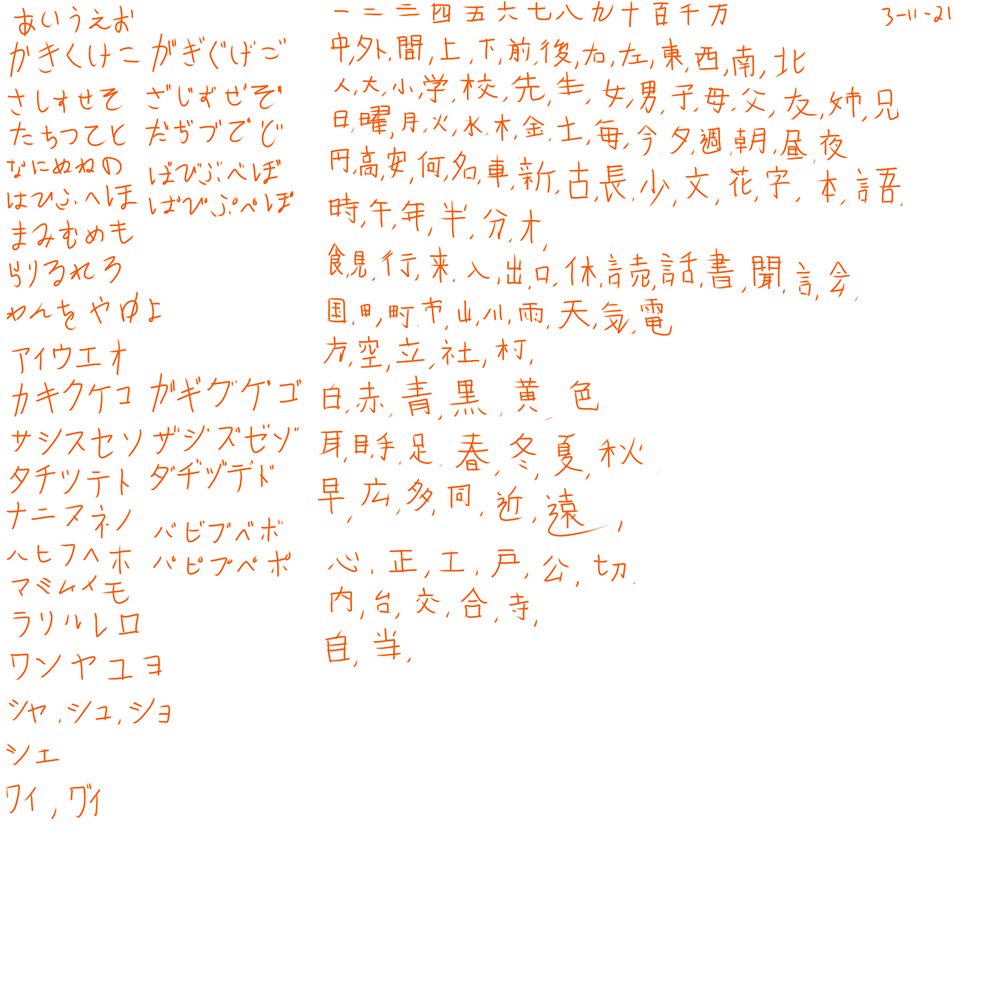 あいうえお
かきくけこ がぎぐげご
さしすせそ ざじずぜぞ
たちつてと だぢづでど
なにぬねの
はひふへほ ばびぶべぼ
ぱぴぷぺぽ
まみむめも
らりるれろ
わんを やゆよ
アイウエオ
カキクケコ ガギグゲゴ
サシスセソ ザジズゼゾ
タチツテト ダヂヅデド
ナニヌネノ
ハヒフヘホ バビブベボ
パピプペポ
マミムメモ
ラリルレロ
ワンヤユヨ
シャ,シュ,ショ
シェ
ワィ,ヷィ
一二三四五六七八九十百千万 3-11-21
中,外,間,上,下,前,後,右,左,東,西,南,北
人,大,小,学,校,先,生,女,男,子,母,父,友,姉,兄
日,曜,月,火,水,木,金,土,毎,今,夕,週,朝,昼,夜
円,高,安,何,名,車,新,古,長,少,文,花,字,本,語,
時,午,年,半,分,才,
食,見,行,来,入,出,口,休,読,話,書,聞,言,会,
国,甲,町,市,山,川,雨,天,気,電
方,空,立,社,村,
白,赤,青,黒,黄,色
耳,目,手,足,春,冬,夏,秋
早,広,多,同,近,遠,
心,正,工,戸,公,切,
内,台,交,合,寺,
自,当,